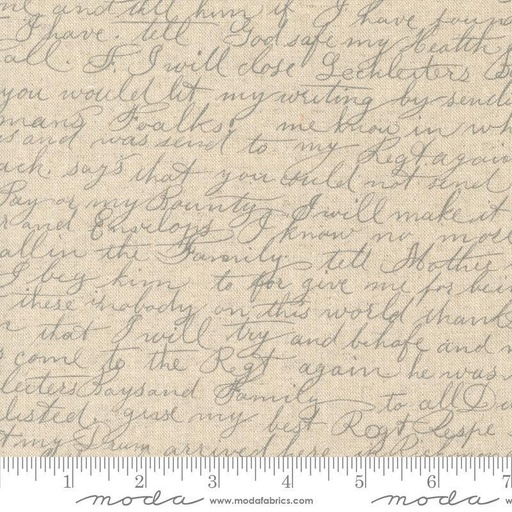 and tell him if I have found
I have. tell God safe my health
all. F. I will close Lechleiters
you would let my writing by send
mans Foalks. me know in wh
and was send to my Regt again
ack. says that you could not send
Pay or my Bounty I will make it
r and Envelops I know no more
all in the Fammily. tell Mother
I beg him to for give me for bei
these is nobody on this world thank
that I will try and behafe and
come to the Regt again he was
leiters Says and Family to all
listed. griss my best Regt Respe
my Drum arrived here
1 2 3 4 5 6 7
moda www.modafabrics.com moda www.modafabrics.com moda